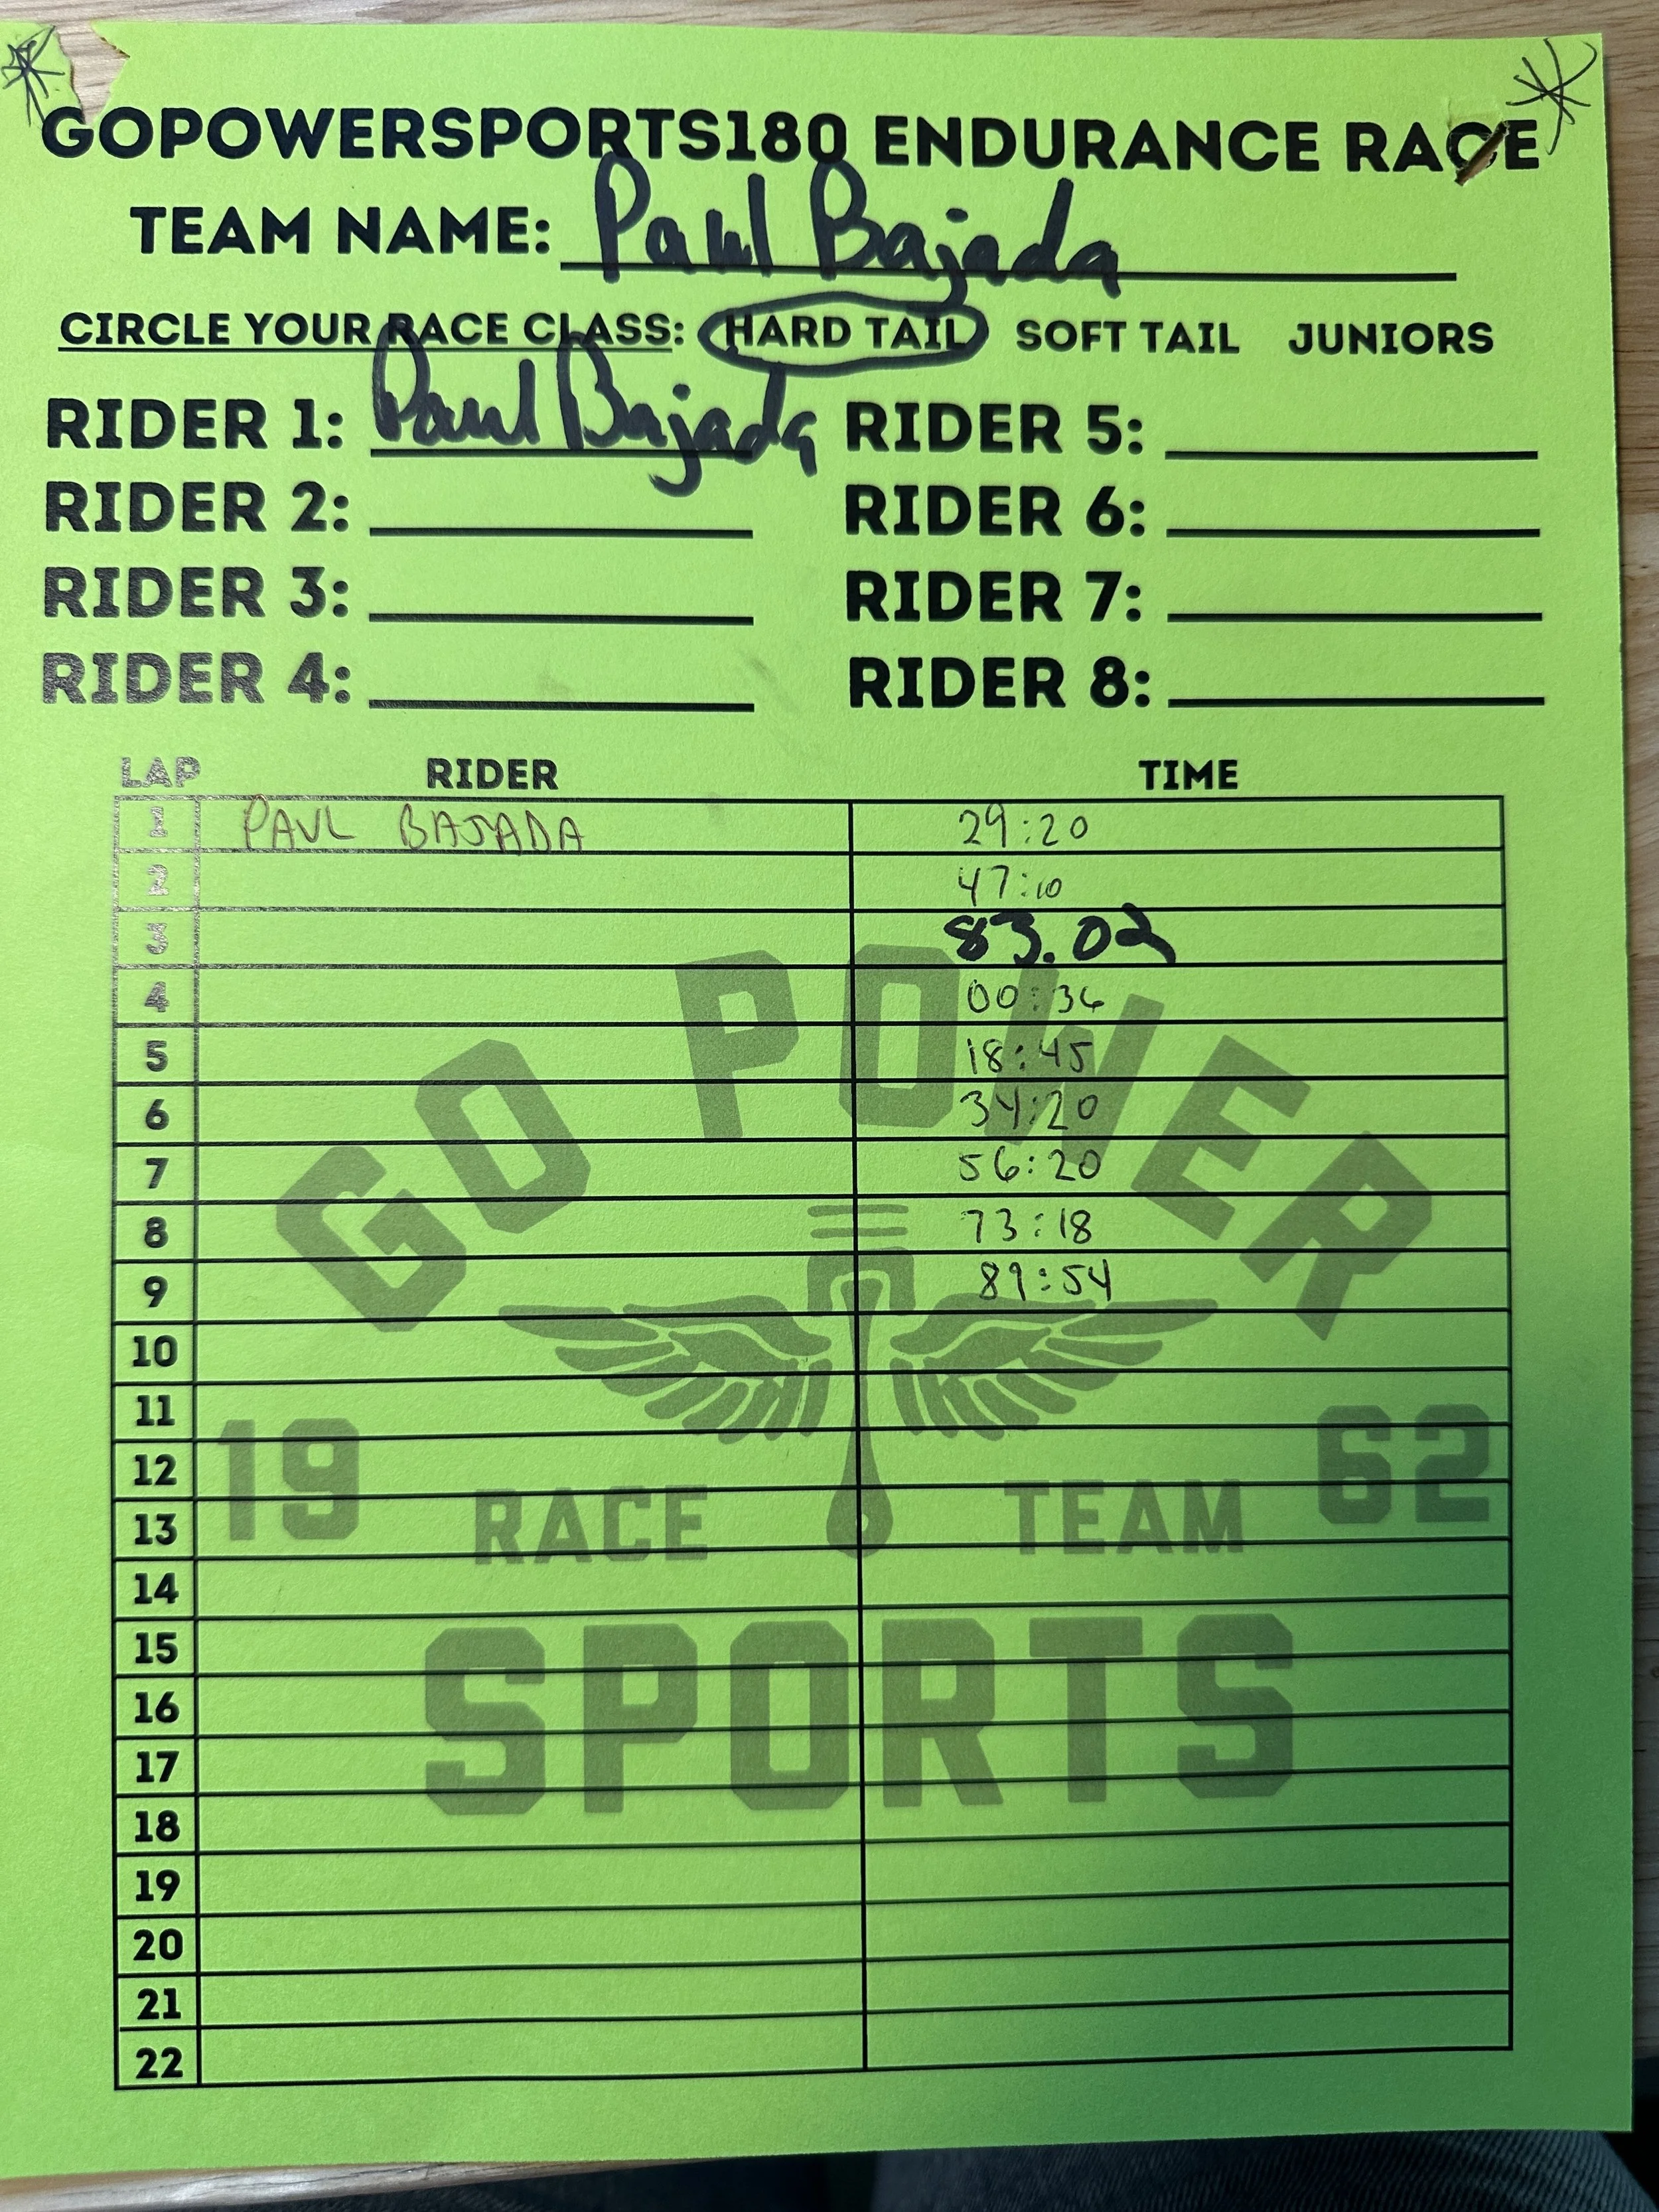 GOPOWERSPORTS180 ENDURANCE RACE
TEAM NAME: Paul Bajada
CIRCLE YOUR RACE CLASS: HARD TAIL SOFT TAIL JUNIORS
RIDER 1: Paul Bajada RIDER 5:
RIDER 2: RIDER 6:
RIDER 3: RIDER 7:
RIDER 4: RIDER 8:
LAP RIDER TIME
1 PAUL BAJADA 29:20
2 47:10
3 83.02
4 00:36
5 18:45
6 34:20
7 56:20
8 73:18
9 89:54
10
11
12
13
14
15
16
17
18
19
20
21
22
GO POWER
19 62
RACE TEAM
SPORTS